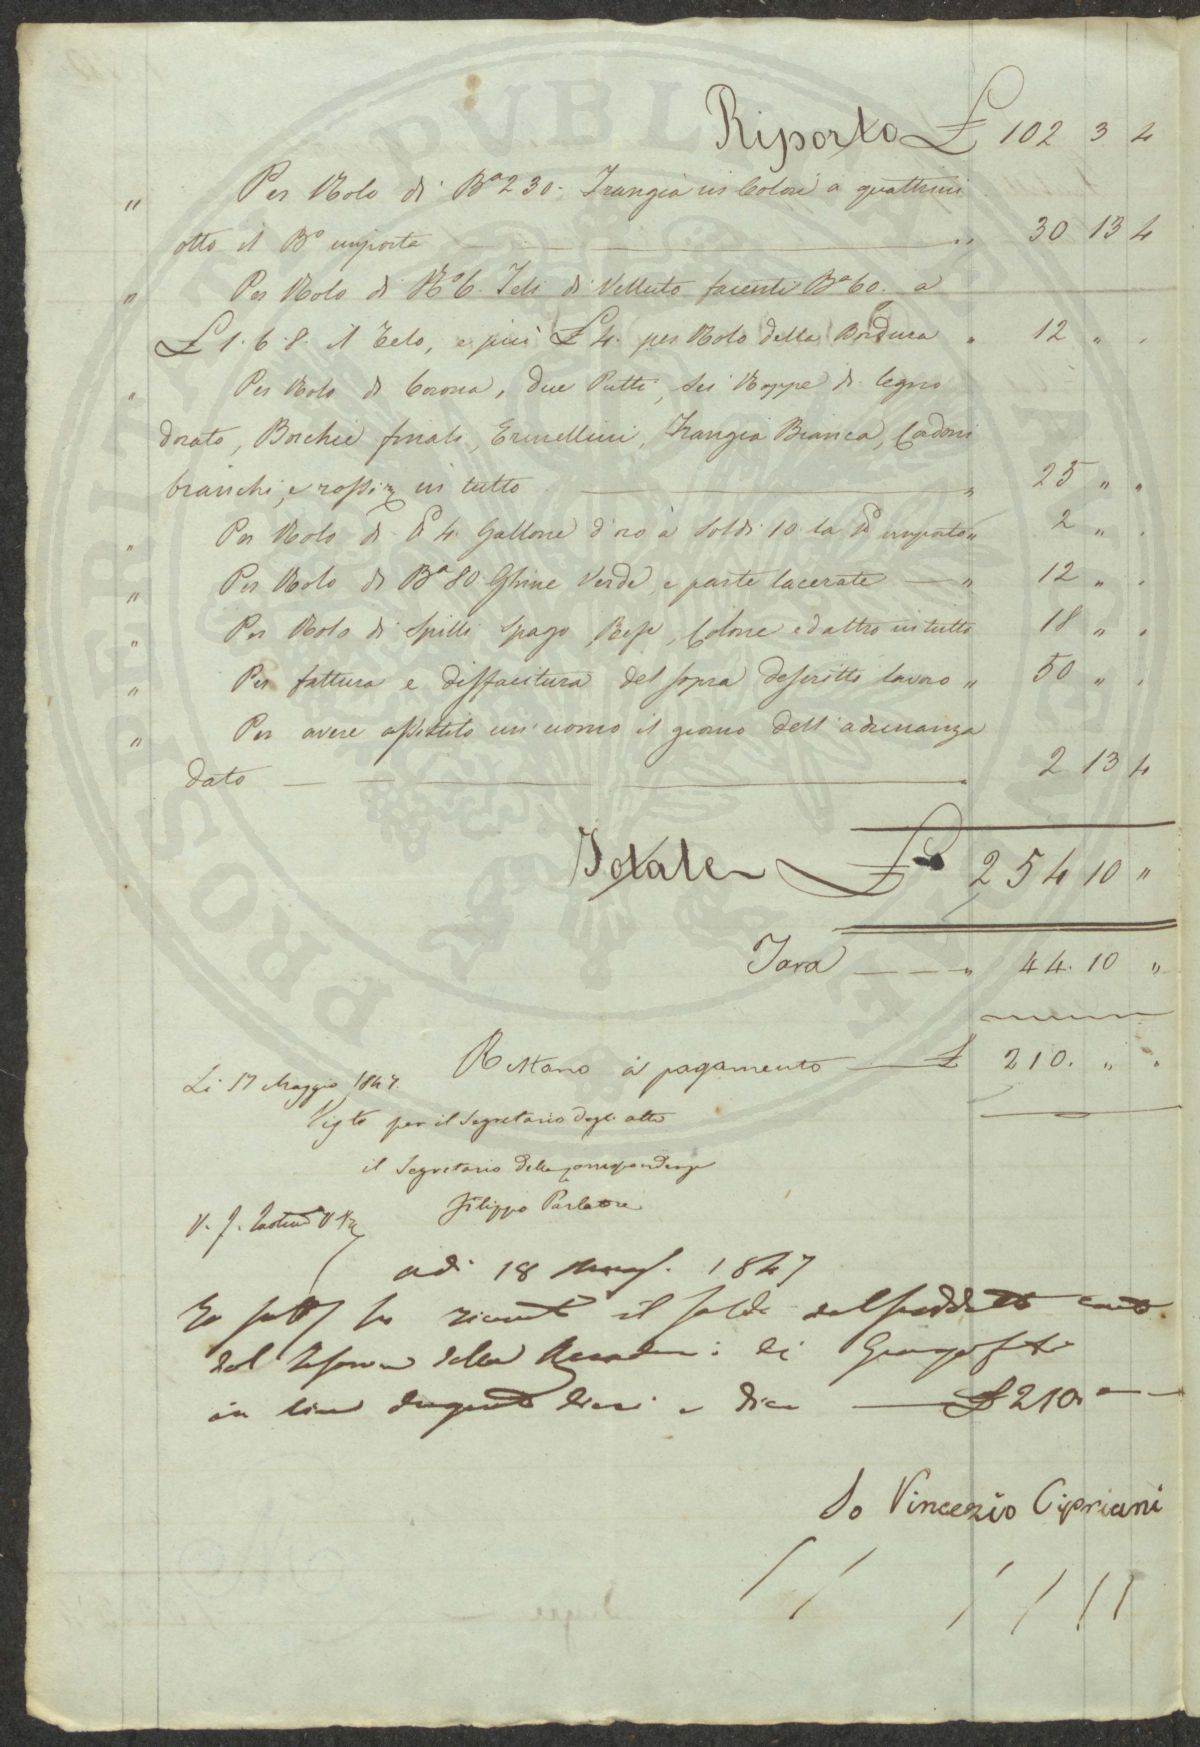 Riporto £ 102 3 4
" Per Nolo di Ba 230. Frangia in Colori a quattrini
otto il Bo importa " 30 13 4
" Per Nolo di No 6. Teli di Velluto facenti Ba 60. a
£ 1. 6. 8. il Telo, e più £ 4. per Nolo della Bordura " 12 " "
" Per Nolo di Corona, due Putti, sei Rappe di legno
dorato, Borchie finali, Ermellini, Frangia Bianca, Cordoni
bianchi, e rossi in tutto " 25 " "
" Per Nolo di 4. Gallone d'oro a soldi 10 la importa " 2 " "
" Per Nolo di Ba 80 Ghine Verde, e parte lacerate " 12 " "
" Per Nolo di Spilli Spago Refe, Colone ed altro in tutto 18 " "
" Per fattura e disfacitura del sopra descritto lavoro " 50 " "
" Per avere assistito un'uomo il giorno dell'adunanza
dato " 2 13 4
Totale £ 254 10 "
Tara " 44. 10 "
Restano a pagamento £ 210. " "
Li 17 Maggio 1847.
Visto per il Segretario degli atti
il Segretario della corrispondenza
Filippo Parlatore
V. J.
adi 18 Magg. 1847
Io sotto ho ricevuto il saldo del suddetto conto
dal della Accademia dei Georgofili
in lire dugento dieci e dico £ 210. "
Io Vincenzio Cipriani
PVBLICAE
PROSPERITATI
AVGENDAE